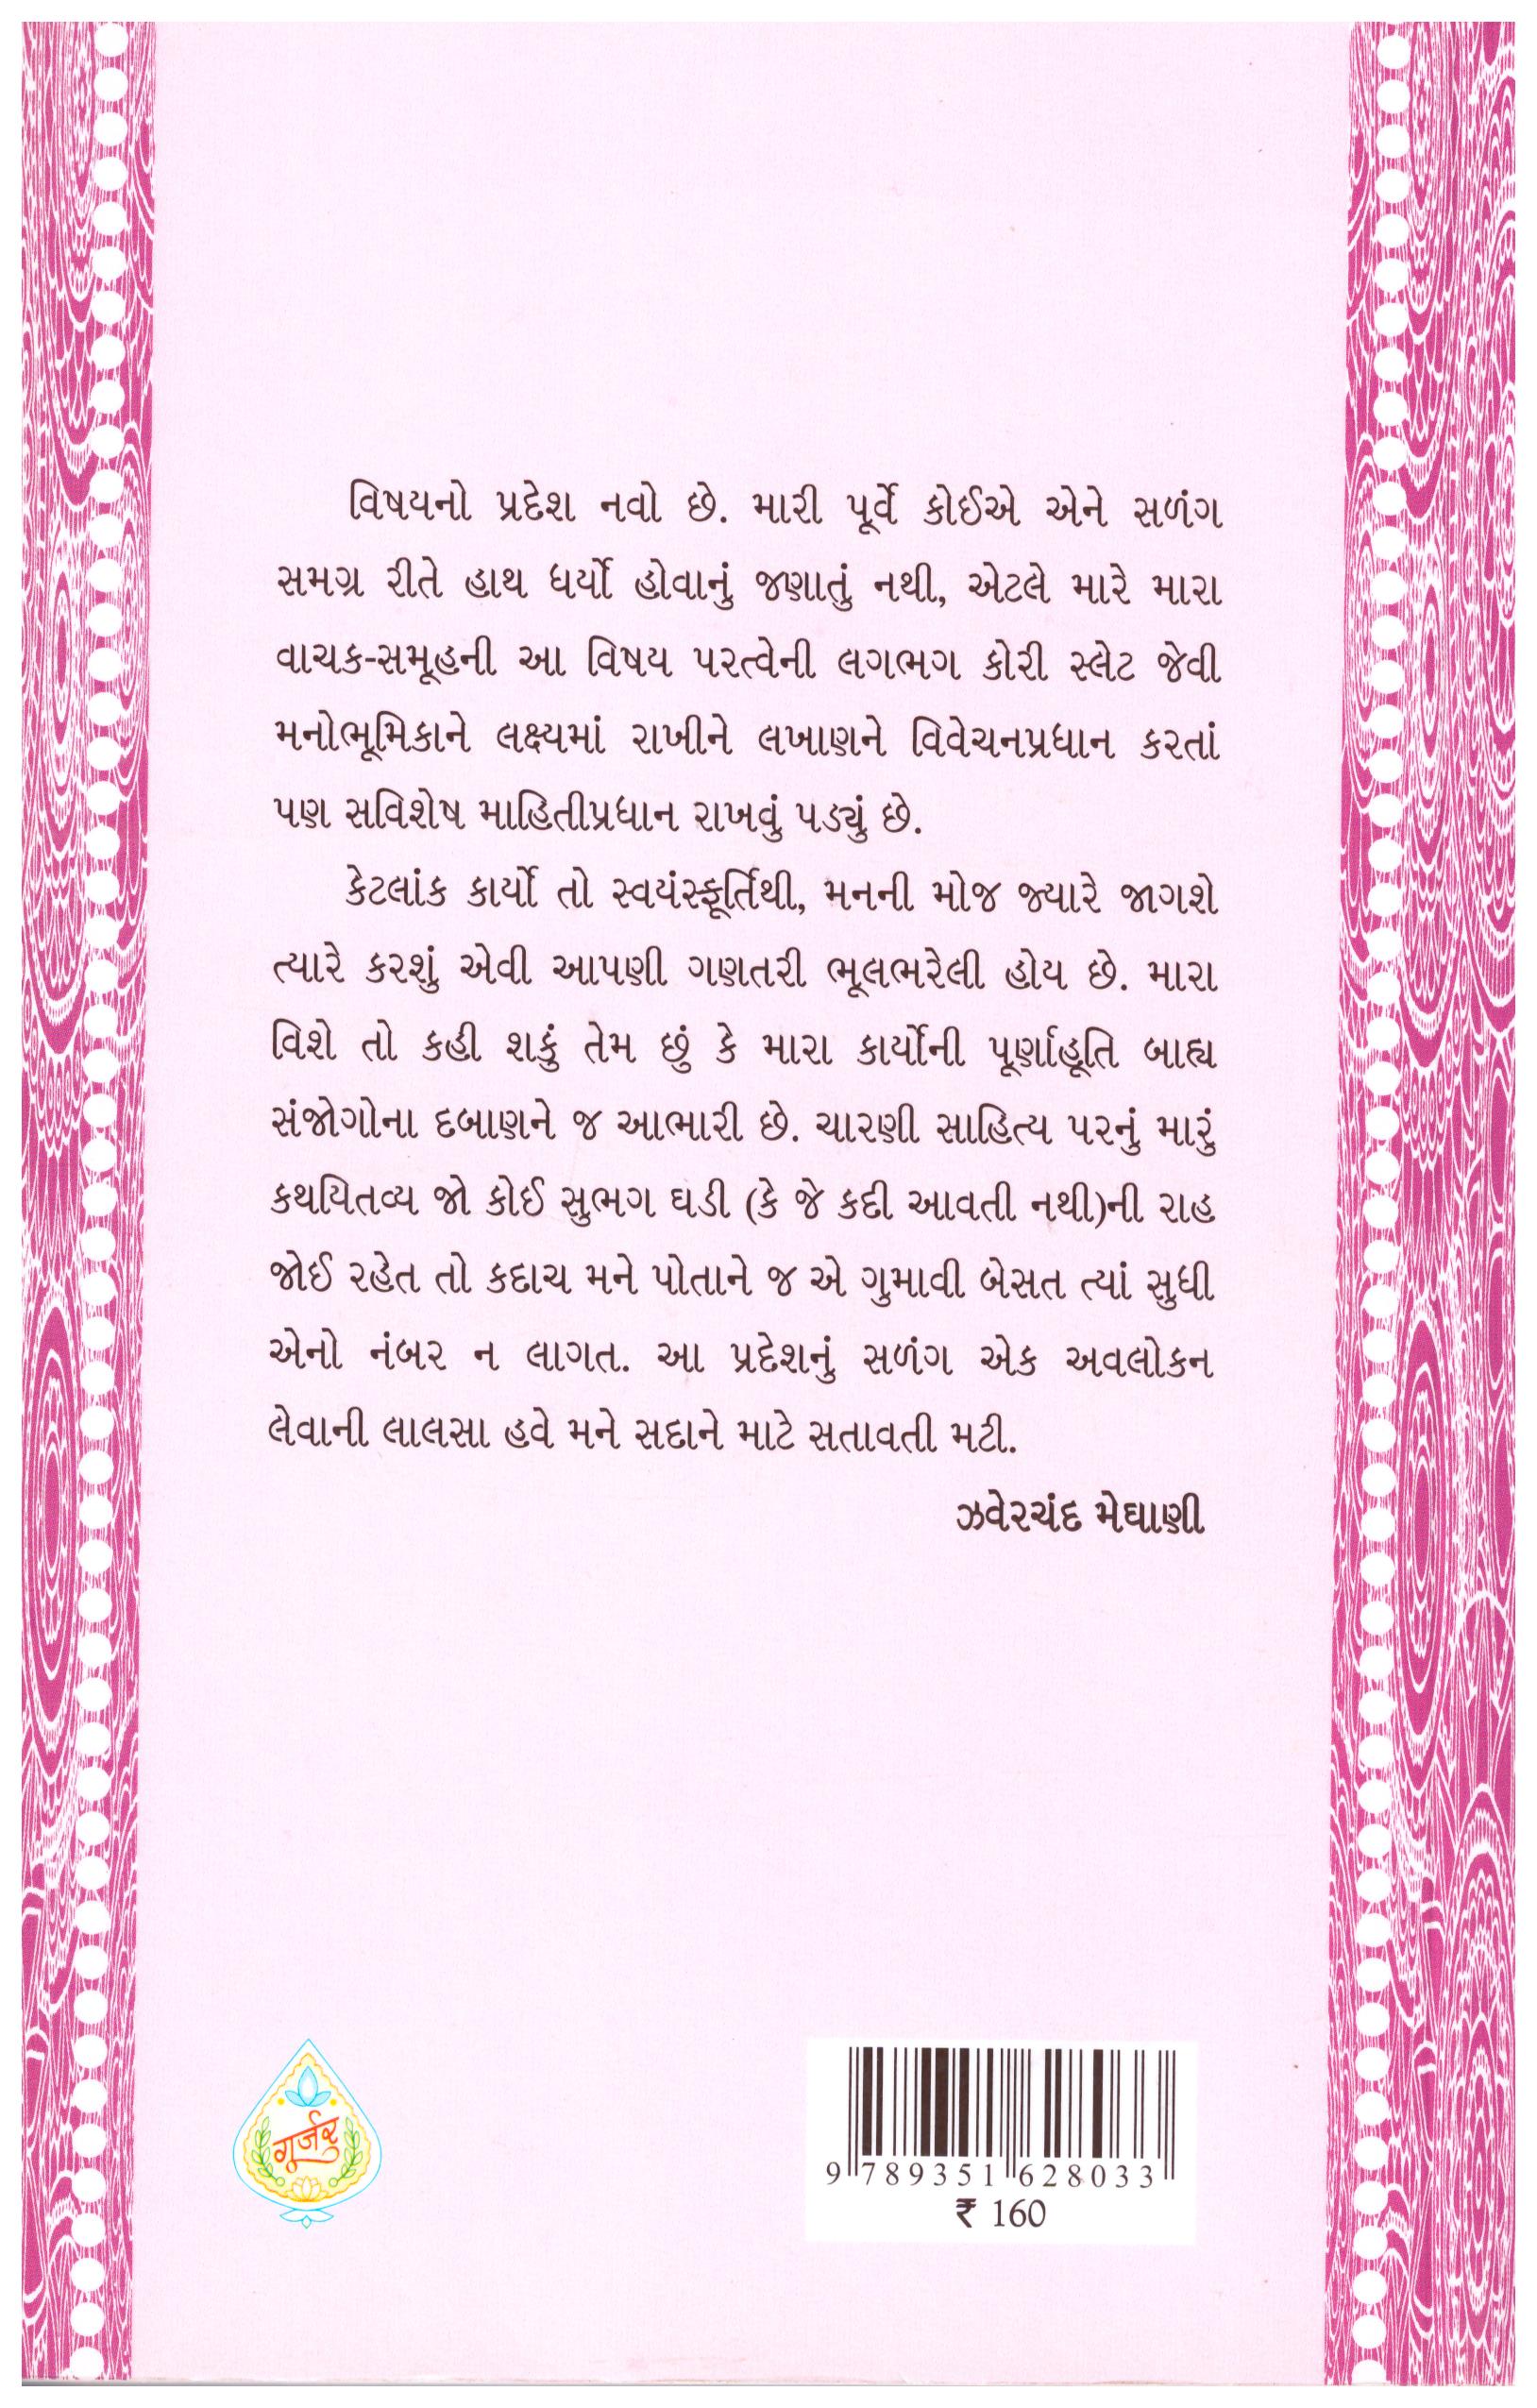 વિષયનો પ્રદેશ નવો છે. મારી પૂર્વે કોઈએ એને સળંગ
સમગ્ર રીતે હાથ ધર્યો હોવાનું જણાતું નથી, એટલે મારે મારા
વાચક-સમૂહની આ વિષય પરત્વેની લગભગ કોરી સ્લેટ જેવી
મનોભૂમિકાને લક્ષ્યમાં રાખીને લખાણને વિવેચનપ્રધાન કરતાં
પણ સવિશેષ માહિતીપ્રધાન રાખવું પડ્યું છે.
કેટલાંક કાર્યો તો સ્વયંસ્ફૂર્તિથી, મનની મોજ જ્યારે જાગશે
ત્યારે કરશું એવી આપણી ગણતરી ભૂલભરેલી હોય છે. મારા
વિશે તો કહી શકું તેમ છું કે મારા કાર્યોની પૂર્ણાહૂતિ બાહ્ય
સંજોગોના દબાણને જ આભારી છે. ચારણી સાહિત્ય પરનું મારું
કથયિતવ્ય જો કોઈ સુભગ ઘડી (કે જે કદી આવતી નથી)ની રાહ
જોઈ રહેત તો કદાચ મને પોતાને જ એ ગુમાવી બેસત ત્યાં સુધી
એનો નંબર ન લાગત. આ પ્રદેશનું સળંગ એક અવલોકન
લેવાની લાલસા હવે મને સદાને માટે સતાવતી મટી.
ઝવેરચંદ મેઘાણી
ગૂર્જર
9 789351 628033
₹ 160